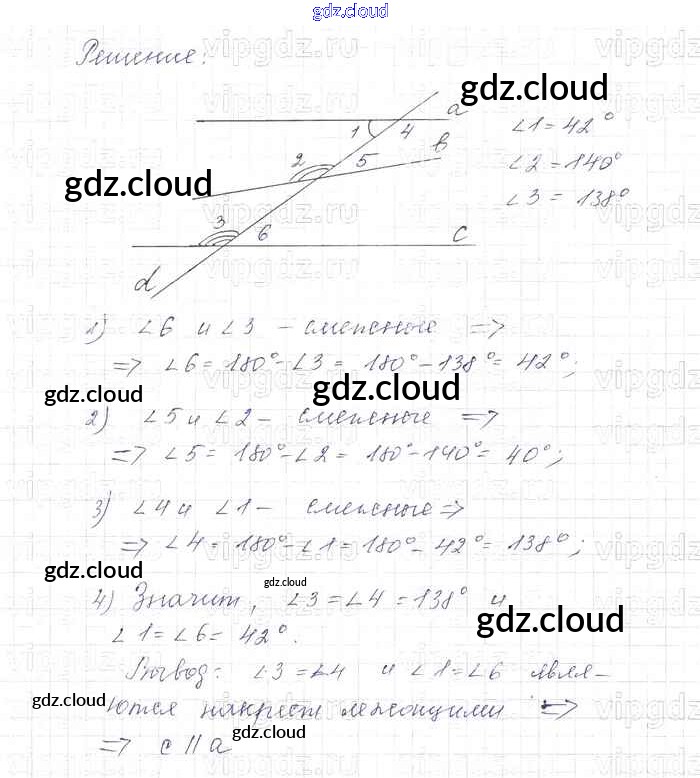 gdz.cloud
Решение:
gdz.cloud
a
1
4
∠1 = 42°
2
5
в
∠2 = 140°
gdz.cloud
∠3 = 138°
3
6
c
d
1) ∠6 и ∠3 – смежные =>
=> ∠6 = 180° – ∠3 = 180° – 138° = 42°;
gdz.cloud
gdz.cloud
2) ∠5 и ∠2 – смежные =>
=> ∠5 = 180° – ∠2 = 180° – 140° = 40°;
3) ∠4 и ∠1 – смежные =>
=> ∠4 = 180° – ∠1 = 180° – 42° = 138°;
gdz.cloud
gdz.cloud
4) Значит, ∠3 = ∠4 = 138° и
∠1 = ∠6 = 42°.
gdz.cloud
Вывод: ∠3 = ∠4 и ∠1 = ∠6 явля-
gdz.cloud
ются накрест лежащими =>
gdz.cloud
=> c || a
vipgdz.ru